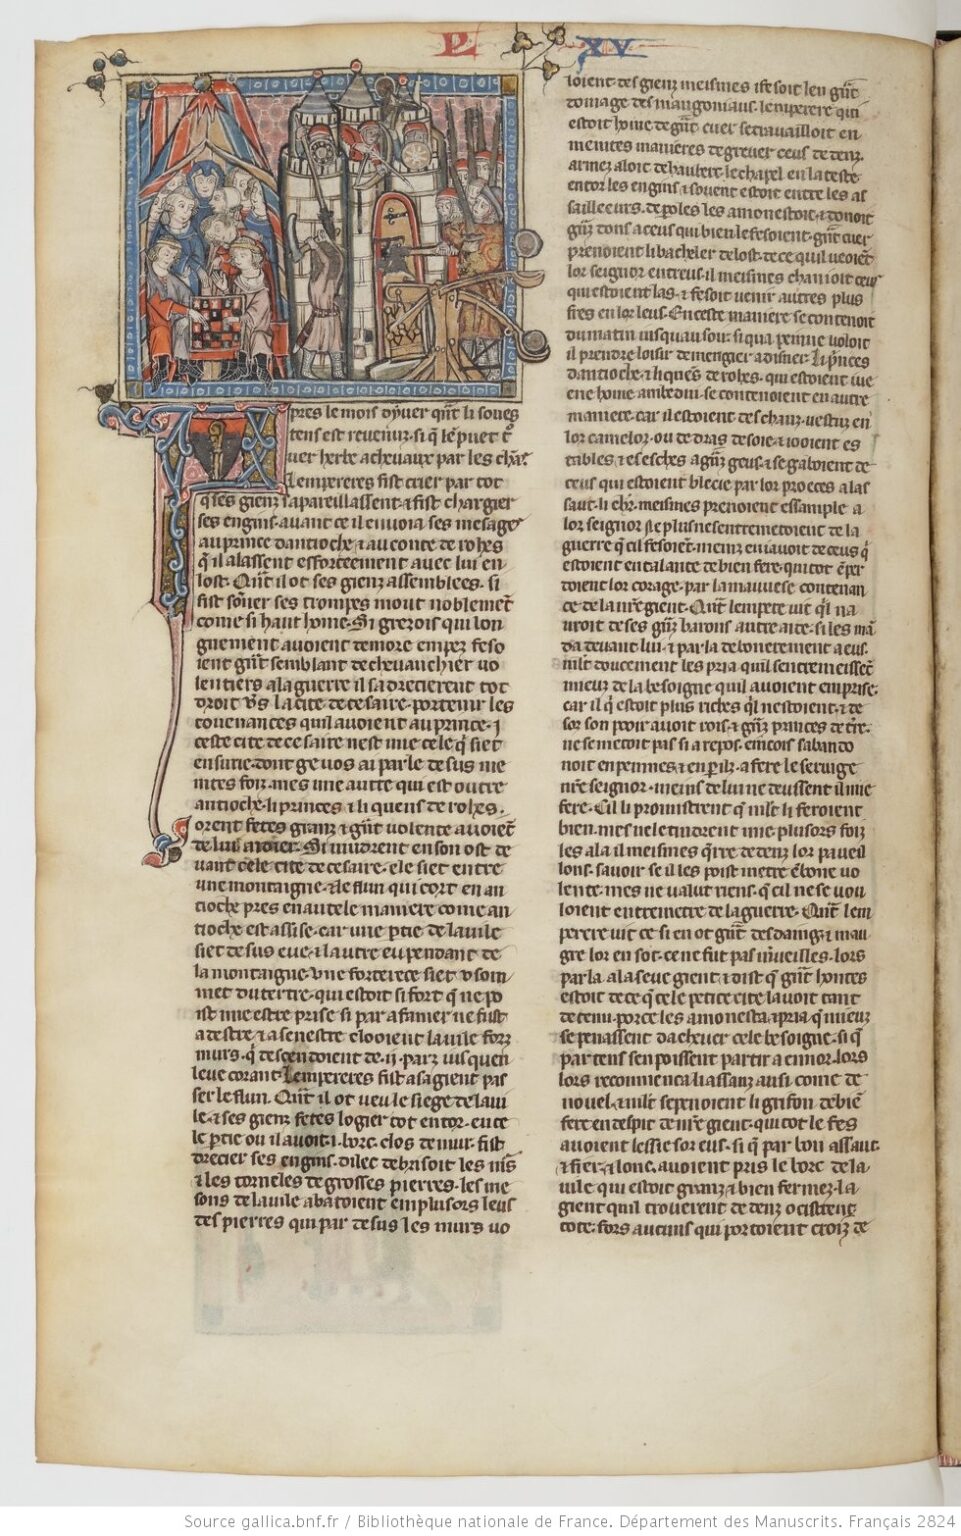 L XV
pres le mois dyver qñt li soues
tens est revenuz. si q̃ le puet tͬ
uer herbe a chevaux par les chãs
Lempereres fist crier par tot
q̃ ses genz sapareillassent. ⁊ fist chargier
ses engins. avant ce il envoia ses mesages
au prince dantioche. ⁊ au conte de rohes
q̃ il alassent efforceement avec lui en
lost. Qñt il ot ses genz assemblees. si
fist soner ses trompes mout noblemẽt
come si haut home. Si grezois qui lon
guement avoient demore empez feso
ient gñt semblant de chevauchier vo
lentiers a la guerre il sadrecierent tot
droit vs̃ la cite de cesaire. por tenir les
covenances quil avoient au prince. i
ceste cite de cesaire nest mie cele q̃ siet
en surie. dont ge vos ai parle desus me
intes foiz. mes une autre qui est outre
antioche. li princes ⁊ li quens de rohes.
orent fetes granz ⁊ gñt volente avoiẽt
de lui aidier. Si vindrent en son ost de
vant cele cite de cesaire. ele siet entre
une montaigne. ⁊ le flun qui cort en an
tioche pres en autele maniere come an
tioche est assise. car une ꝑtie de la vile
siet desus eve. ⁊ la autre eu pendant de
la montaigne. Une forterece siet ou som
met du tertre. qui estoit si fort q̃ ne po
ist mie estre prise si par afamer ne fust
a destre. ⁊ a senestre clooient la vile forz
murs. q̃ descendoient de .ii. parz iusquen
leve corant. Lempereres fist a sa gient pas
ser le flun. Qñt il ot veu le siege de la vi
le. ⁊ ses genz fetes logier tot entor. en ce
le ꝑtie ou il avoit .i. borc clos de mur. fist
drecier ses engins. dilec debrisoit les ms̃
⁊ les torneles de grosses pierres. les me
sons de la vile abatoient en plusors leus
des pierres qui par desus les murs vo
loient. des genz meismes i fesoit len gñt
domage des maugonians. lemperere qui
estoit home de gñt cuer se travailloit en
meintes manieres de grever ceus dedenz.
armez aloit de hauberc. le chapel en la teste
entor les engins ⁊ sovent estoit entre les as
sailleeurs. de paroles les amonestoit. ⁊ donoit
gñz dons a ceus qui bien le fesoient. gñt cuer
prenoient li bacheler de lost. de ce quil veoiẽt
lor seignor entreus. il meismes chanioit ceus
qui estoient las. ⁊ fesoit venir autres plus
fres en lor leus. En ceste maniere se contenoit
du matin iusquau soir. si qua peinne voloit
il prendre loisir de mengier a disner. li princes
dantioche. ⁊ li quens de rohes. qui estoient iue
ene home ambedui. se contenoient en autre
maniere. car il estoient deschauz. vestuz en
lor camelor. ou de dras de soie. ⁊ iooient es
tables. ⁊ es esches a gñz geus. ⁊ se gaboient de
ceus qui estoient blecie par lor proeces a las
saut. li chr̃. meismes prenoient essample a
lor seignor si q̃ plus ne sentremetoient de la
guerre q̃ cil fesoiẽt. meinz en i avoit de ceus q̃
estoient entalante de bien fere. qui tot ẽper
doient lor corage. par la mauvese contenan
ce de la nr̃e gient. Qñt lemperere vit q̃l na
vroit de ses gñz barons autre aide. si les mã
da devant lui. ⁊ parla debonerement a eus.
ml̃t doucement les pria quil sentremeissẽt
mieuz de la besoigne quil avoient emprise.
car il q̃ estoit plus riches q̃l nestoient. ⁊ de
sor son pooir avoit rois. ⁊ gñz princes de tr̃e.
ne se metoit pas si a repos. eincois sabando
noit en peinnes. ⁊ en ꝑilz. a fere le servige
nr̃e seignor. meins de lui ne deussent il mie
fere. Cil li promistrent q̃ ml̃t li feroient
bien. mes ne le tindrent mie. plusors foiz
les ala il meismes q̃rre dedenz lor paveil
lons. savoir se il les poist metre ẽ bone vo
lente. mes ne valut riens. q̃ cil ne se vou
loient entremetre de la guerre. Qñt lem
perere vit ce si en ot gñt desdaing. ⁊ mau
gre lor en sot. ce ne fut pas mr̃veilles. lors
parla. a la seue gient. ⁊ dist q̃ gñt hontes
estoit de ce q̃ cele petite cite lavoit tant
detenu. por ce les amonesta. ⁊ pria. q̃ mieuz
se penassent dachever cele besoigne. si q̃
par tens sen poissent partir a ennor. lors
lors recomenca li assauz ausi come de
novel. ⁊ ml̃t se penoient li grifon de biẽ
fere en despit de nr̃e gient. qui tot le fes
avoient lessie sor eus. si q̃ par bon assaut.
⁊ fier. ⁊ lonc. avoient pris le borc de la
vile qui estoit granz ⁊ bien fermez. la
gient quil trouerent dedenz ocistrent
tote. fors aucuns qui portoient croiz de
Source gallica.bnf.fr / Bibliothèque nationale de France. Département des Manuscrits. Français 2824